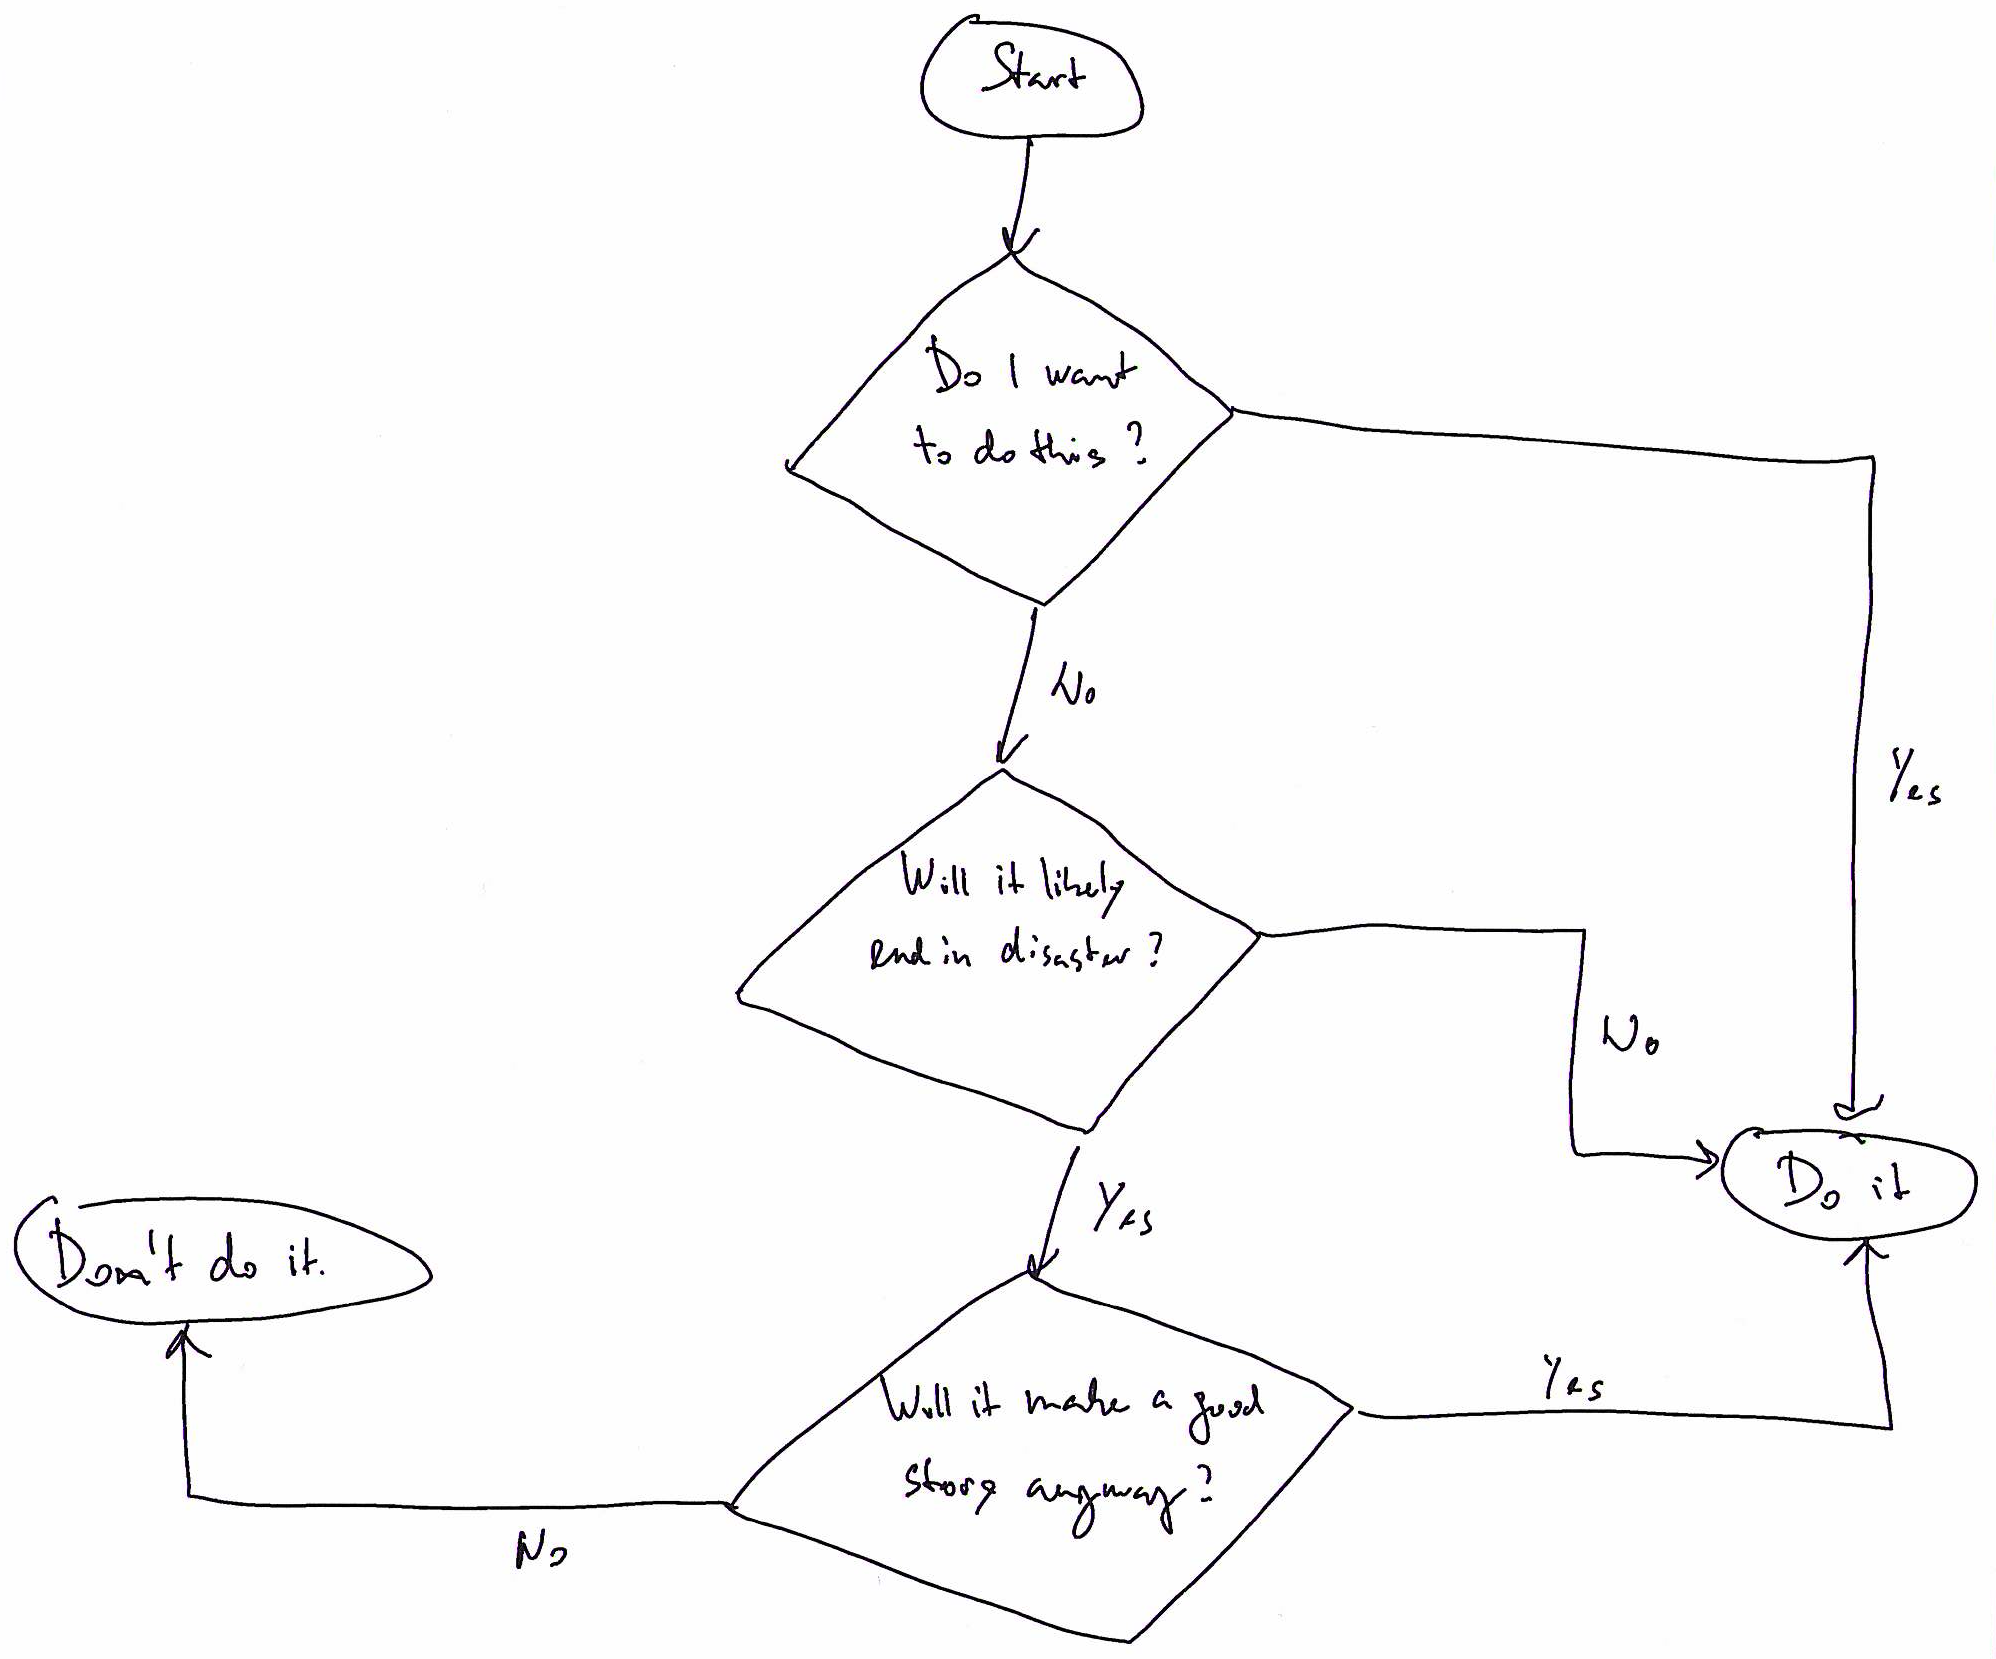 Start
Do I want
to do this?
No
Yes
Will it likely
end in disaster?
No
Yes
Do it
Don't do it.
Will it make a good
story anyway?
Yes
No